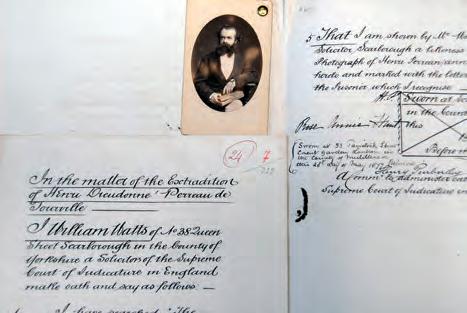 24 7
In the matter of the Extradition
of Henri Dieudonné Perreau de
Tourville
I William Watts of No 38 Queen
Street Scarborough in the County of
Yorkshire a Solicitor of the Supreme
Court of Judicature in England
make oath and say as follows. —
I have searched "the
5 That I am shown by Mr
Solicitor Scarborough a likeness
Photograph of Henri
hereto and marked with the letter
the Prisoner which I recognise
Sworn at
in the
this
Before
Rose Annie
Sworn at 33 Tavistock Street
Covent Garden London in
the County of Middlesex
this day of May 1877
Henry
to administer
Supreme Court of Judicature in